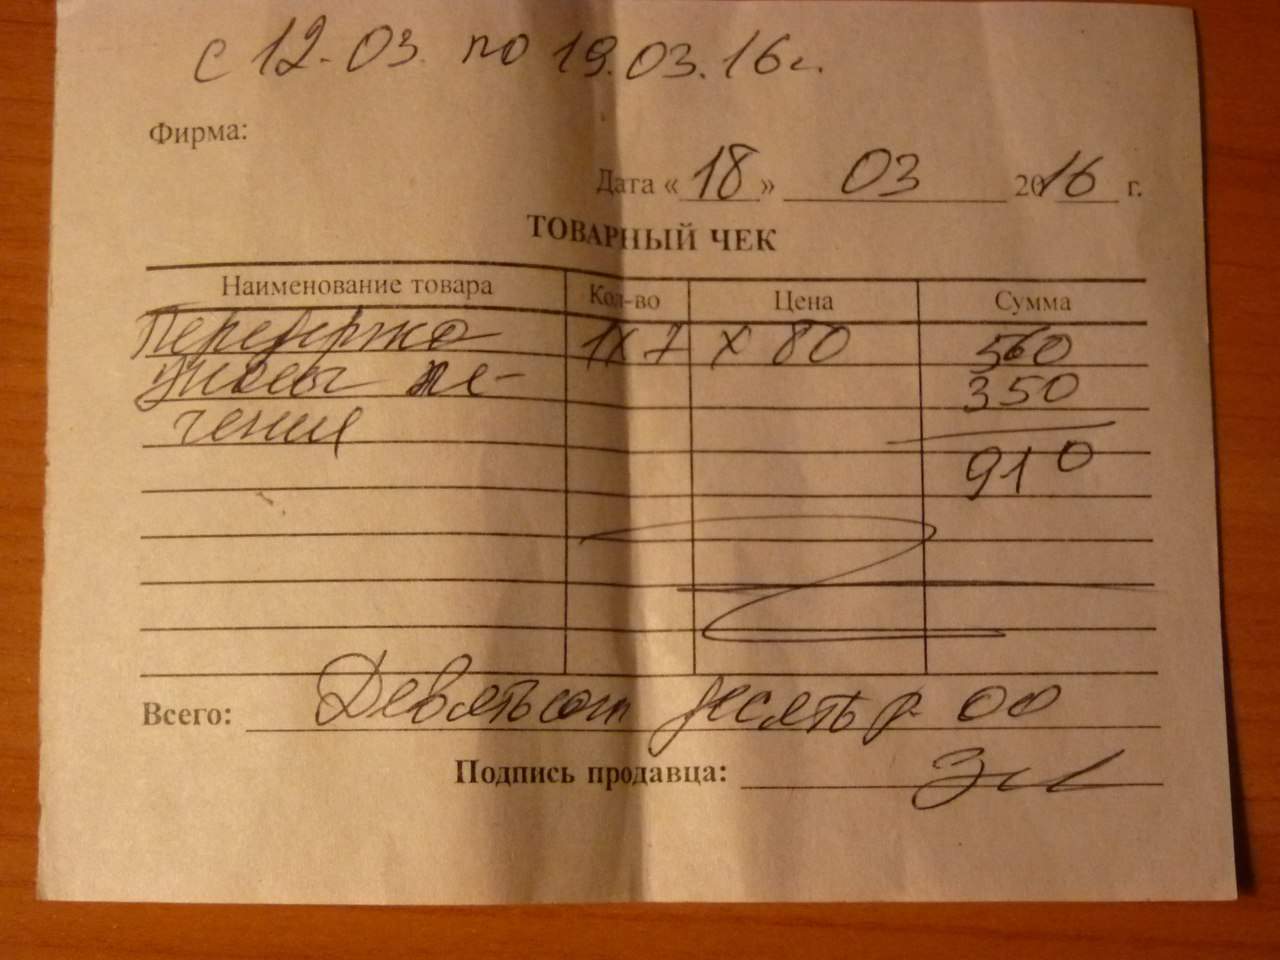 с 12.03. по 19.03.16г.
Фирма:
Дата «18» 03 2016 г.
ТОВАРНЫЙ ЧЕК
Наименование товара Кол-во Цена Сумма
Передержка 1x7 x 80 560
350
чения
910
Всего: Девятьсот десять р 00
Подпись продавца: